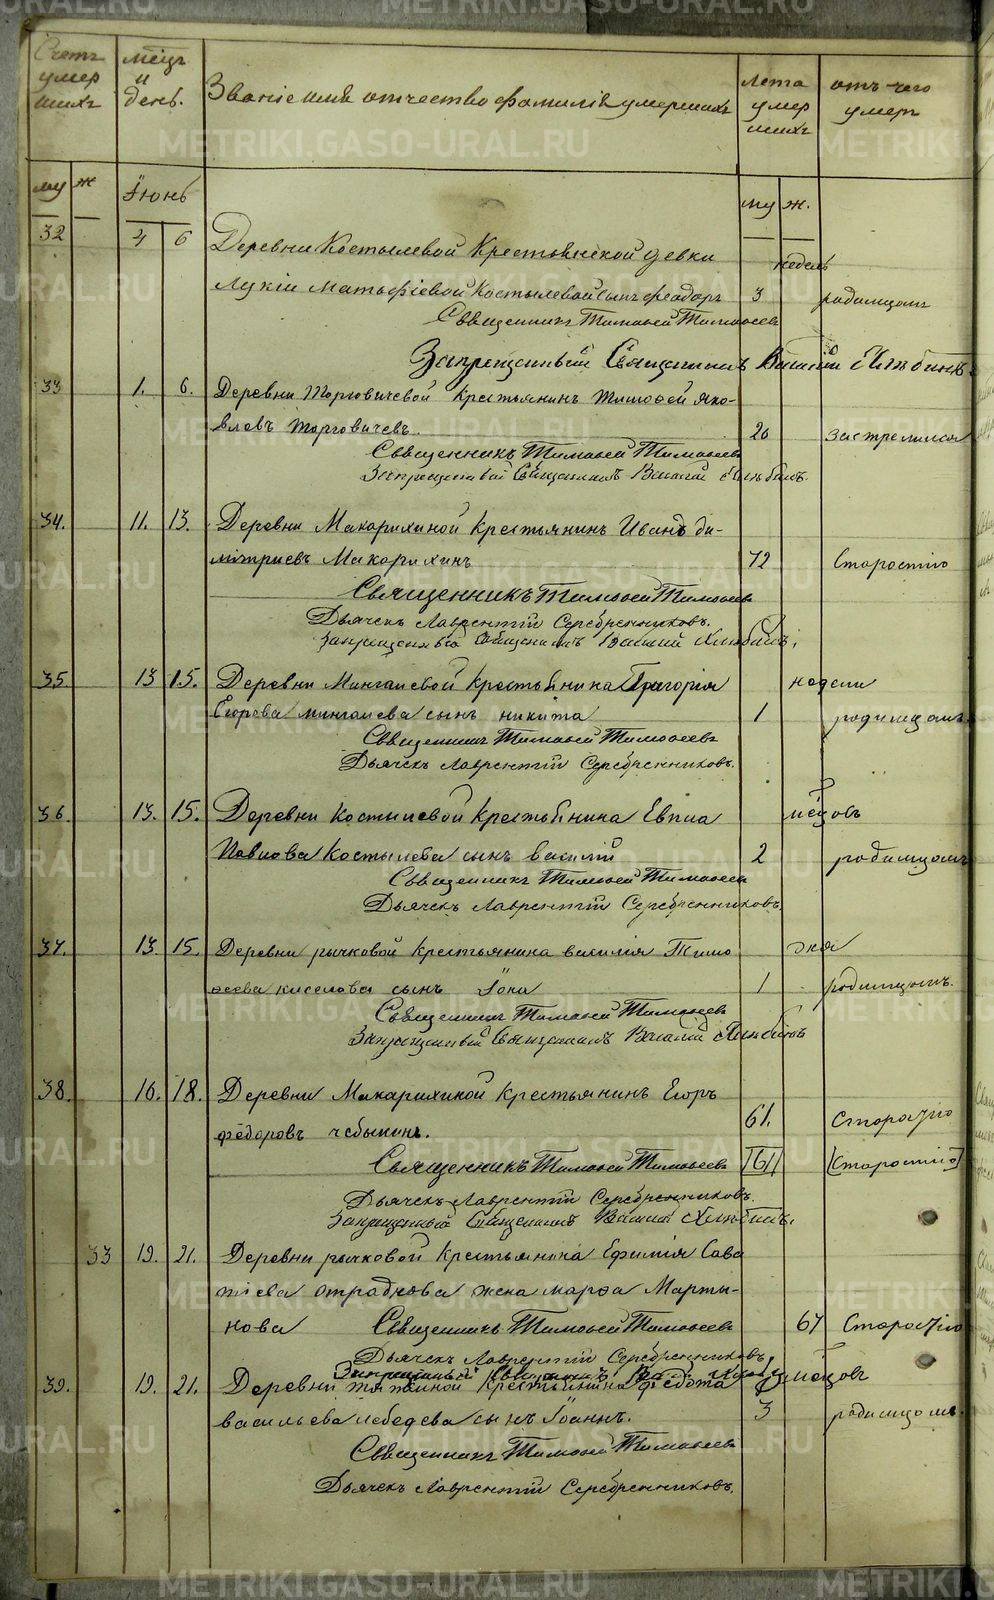 METRIKI.GASO-URAL.RU
Счетъ умер шихъ
мѣцъ и день.
Званіе имя отчество фамилія умершихъ
Лета умер шихъ
отъ чего умеръ
му ж
Іюнь
му ж.
32 4 6 Деревни Костылевой Крестьянской девки
недель
Лукіи Матьфіевой Костылевой сынъ Феодоръ 3 родимцомъ
Священникъ Тимофей Тимофеевъ
Запрещенный Священникъ
33 1. 6. Деревни Торговичевой Крестьянинъ Тимофей Яко-
влевъ Торговичевъ. 20 застрелился
Священникъ Тимофей Тимофеевъ
Запрещенный Священникъ
34. 11. 13. Деревни Макарихиной Крестьянинъ Иванъ Ди-
митриевъ Макарихинъ 72 Старостію
Священникъ Тимофей Тимофеевъ
Дьячекъ Лаврентій Серебренниковъ.
Запрещенный Священникъ
35. 13 15. Деревни Мингалевой Крестьянина Григорія недели
Егорова Мингалева сынъ Никита 1 родимцомъ
Священникъ Тимофей Тимофеевъ
Дьячекъ Лаврентій Серебренниковъ.
36. 13. 15. Деревни Костылевой Крестьянина мѣцовъ
Павлова Костылева сынъ Василій 2 родимцомъ
Священникъ Тимофей Тимофеевъ
Дьячекъ Лаврентій Серебренниковъ.
37. 13. 15. Деревни Рычковой Крестьянина Василія Тимо дня
феева Киселова сынъ Іона 1 родимцомъ.
Священникъ Тимофей Тимофеевъ
Запрещенный Священникъ
38. 16. 18. Деревни Макарихиной Крестьянинъ Егоръ
Федоровъ Чебыкинъ. 61. Старостію
Священникъ Тимофей Тимофеевъ [61] [Старостію]
Дьячекъ Лаврентій Серебренниковъ.
Запрещенный Священникъ
33 19. 21. Деревни Рычковой Крестьянина Ефимія Сава
тіева Отраднова жена Марфа Марты-
нова Священникъ Тимофей Тимофеевъ 67 Старостію
Дьячекъ Лаврентій Серебренниковъ,
Запрещенный Священникъ
39. 19. 21. Деревни Крестьянина Федота мѣцовъ
Васильева Лебедева сынъ Іоаннъ. 3 родимцомъ.
Священникъ Тимофей Тимофеевъ
Дьячекъ Лаврентій Серебренниковъ.
METRIKI.GASO-URAL.RU